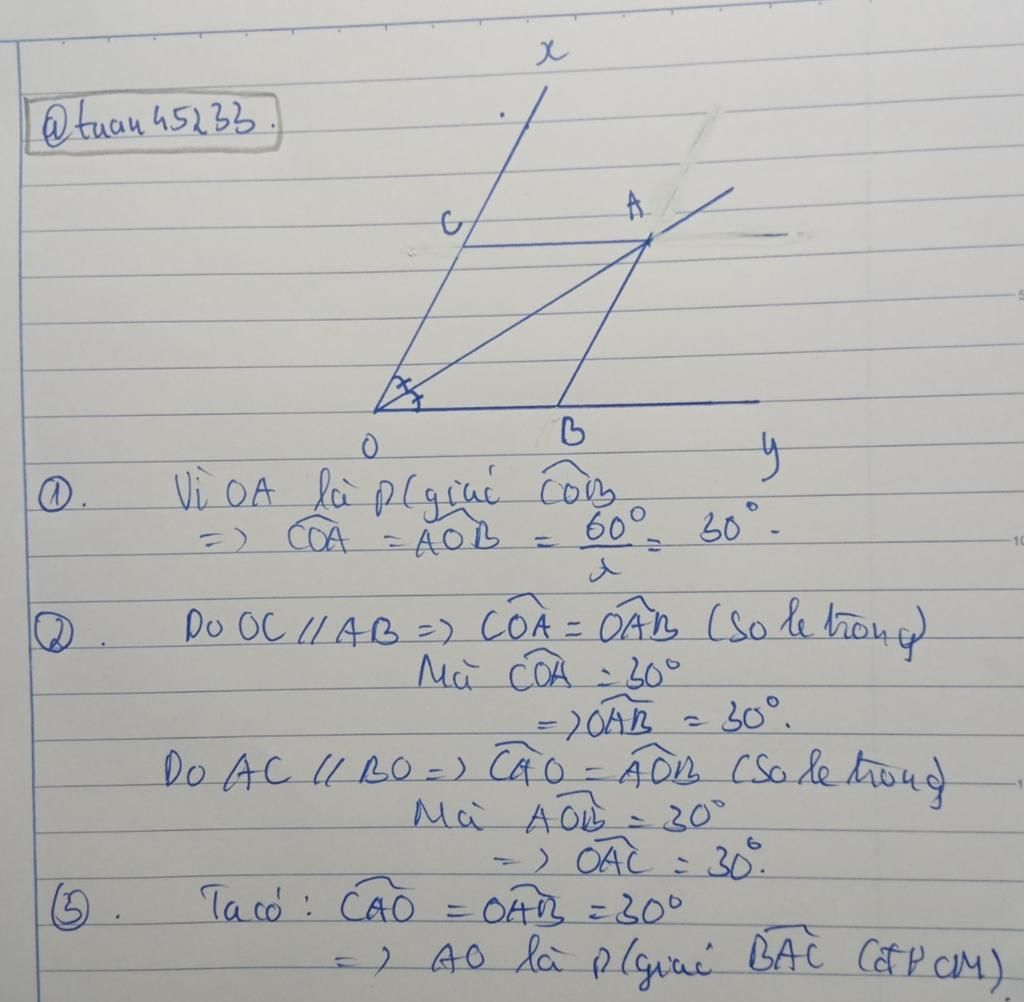 x
@tuan45233.
C
A
O
B
y
①. Vì OA là p/giác COB
=> COA = AOB = 60°/2 = 30°.
②. Do OC // AB => COA = OAB (so le trong)
Mà COA = 30°
=> OAB = 30°.
Do AC // BO => CAO = AOB (so le trong)
Mà AOB = 30°
=> OAC = 30°.
③. Ta có: CAO = OAB = 30°
=> AO là p/giác BAC (đPCM)
5
10
1